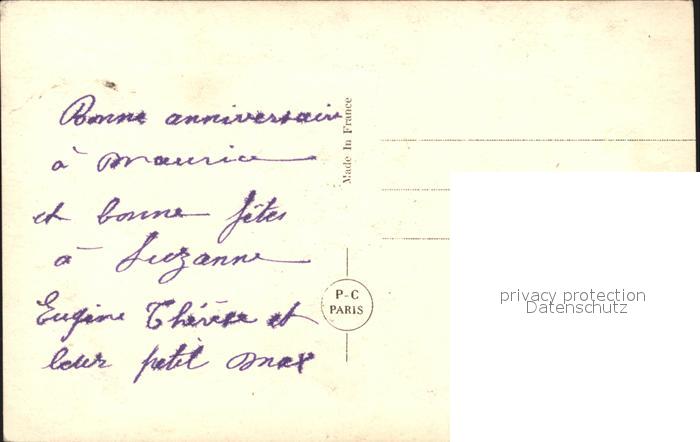 Bonne anniversaire
à Maurice
et bonne fêtes
à Suzanne
Eugène Thérèse et
leur petit Max
Made In France
P-C
PARIS
privacy protection
Datenschutz